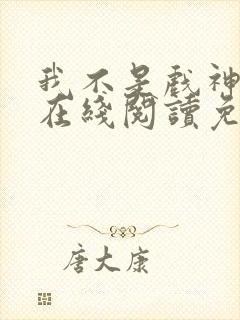 我不是戲神
在綫閱讀免
唐大康